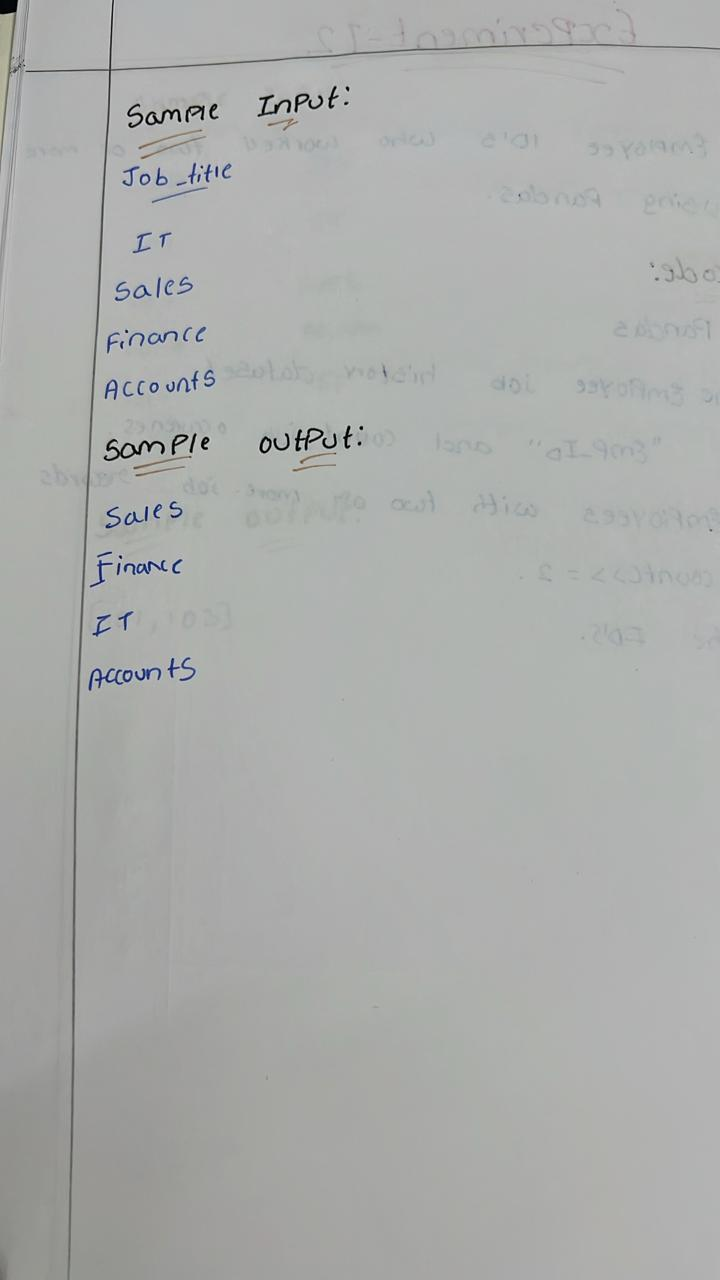 Sample Input:
Job_title
IT
Sales
Finance
Accounts
Sample output:
Sales
Finance
IT
Accounts